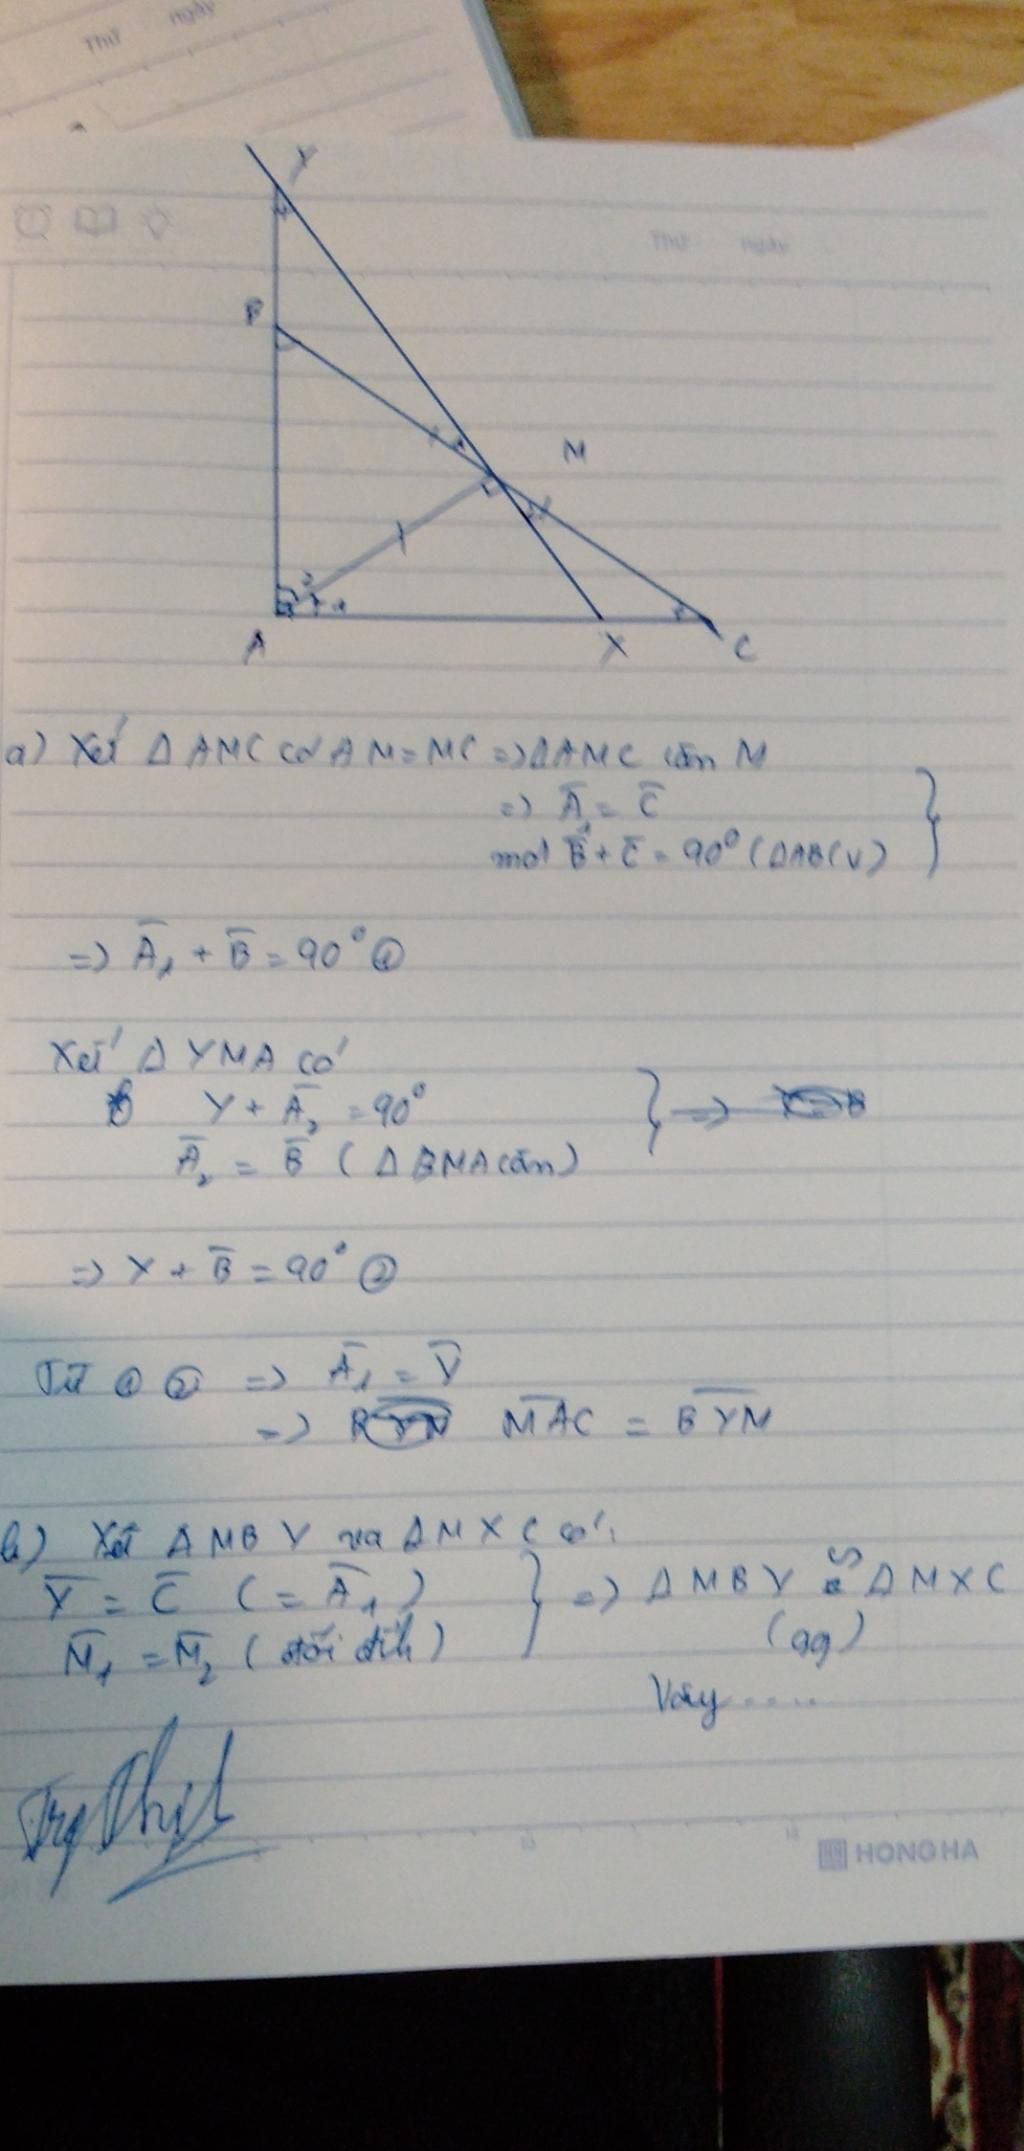 Thứ ngày
Thứ ngày
Y
B
M
2
1
A
X
C
a) Xét Δ AMC có AM = MC => ΔAMC cân M
=> A₁ = C
mà B + C = 90° (ΔABC V)
=> A₁ + B = 90° ①
Xét Δ YMA có
Y + A₂ = 90°
=>
A₂ = B (Δ BMA cân)
=> Y + B = 90° ②
Từ ① ② => A₁ = Y
=> MAC = BYM
b) Xét Δ MBY và Δ MXC có:
Y = C (= A₁)
=> Δ MBY ∽ Δ MXC
M₁ = M₂ (đối đỉnh)
(gg)
Vậy .....
HONG HA